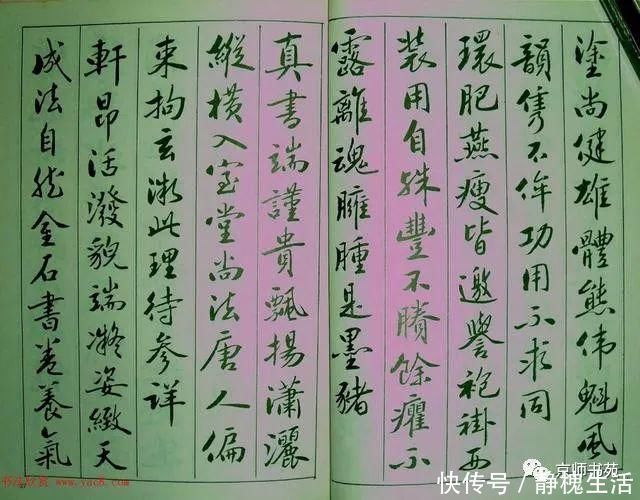 塗尚健雄體態偉魁風
韻雋不侔功用不求同
環肥燕瘦皆邀譽袍褂西
裝用自殊豐不賸餘癯不
露離魂臃腫是墨豬
真書端謹貴飄揚瀟灑
縱橫入室堂尚法唐人偏
束拘玄微此理待參詳
軒昂活潑貌端凝姿緻天
成法自然金石書卷養氣
书法欣赏 www.yac8.com
京师书苑
快传号/静槐生活